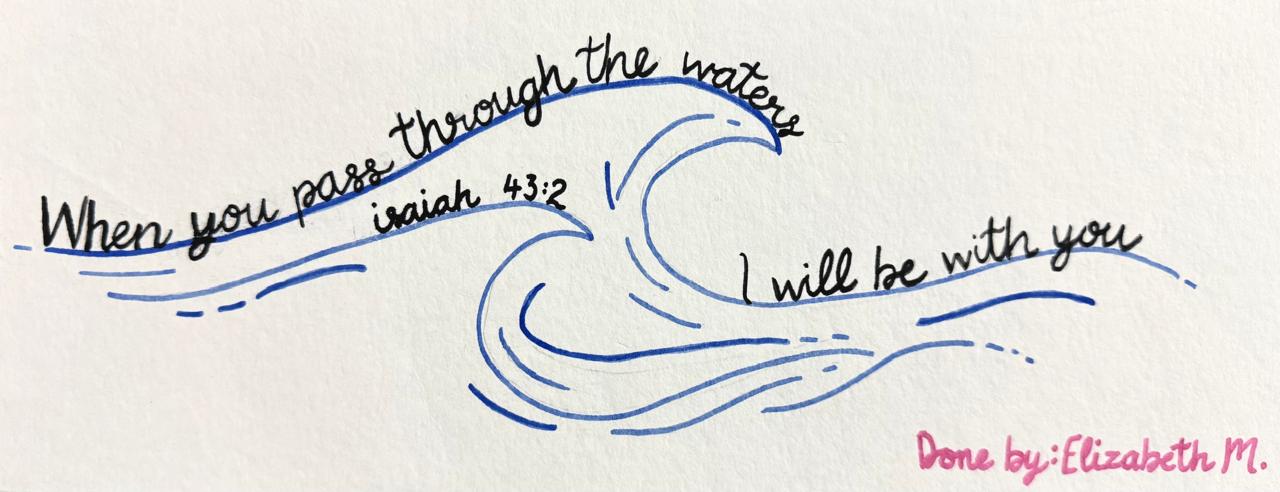 When you pass through the waters
isaiah 43:2
I will be with you
Done by: Elizabeth M.